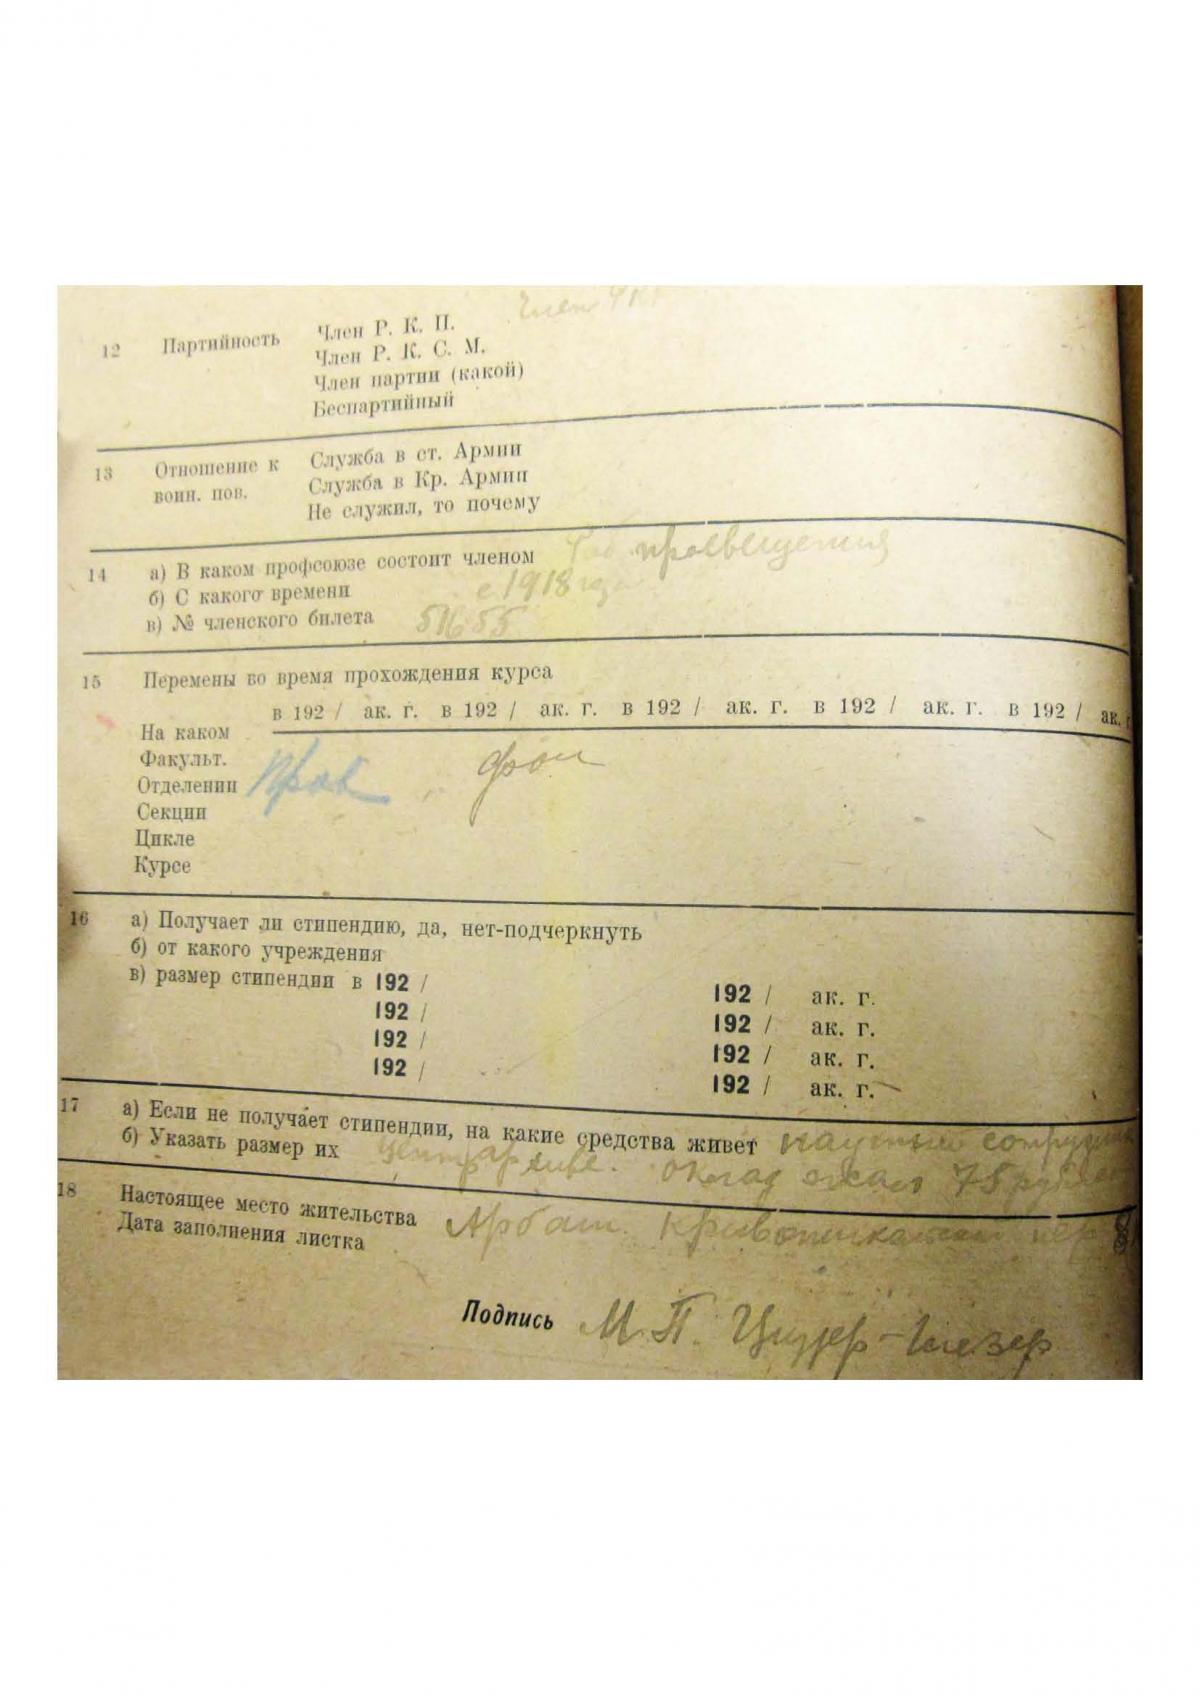 Член РКП
12 Партийность Член Р. К. П.
Член Р. К. С. М.
Член партии (какой)
Беспартийный
13 Отношение к воин. пов. Служба в ст. Армии
Служба в Кр. Армии
Не служил, то почему
14 а) В каком профсоюзе состоит членом Раб. просвещения
б) С какого времени с 1918 года
в) № членского билета 51655
15 Перемены во время прохождения курса
в 192 / ак. г. в 192 / ак. г. в 192 / ак. г. в 192 / ак. г. в 192 / ак. г.
На каком
Факульт.
Отделении Прав фон
Секции
Цикле
Курсе
16 а) Получает ли стипендию, да, нет-подчеркнуть
б) от какого учреждения
в) размер стипендии в 192 / 192 / ак. г.
192 / 192 / ак. г.
192 / 192 / ак. г.
192 / 192 / ак. г.
17 а) Если не получает стипендии, на какие средства живёт научный сотрудник
б) Указать размер их Центрархива. оклад 75 рублей
18 Настоящее место жительства Арбат. пер 8
Дата заполнения листка
Подпись М. П.